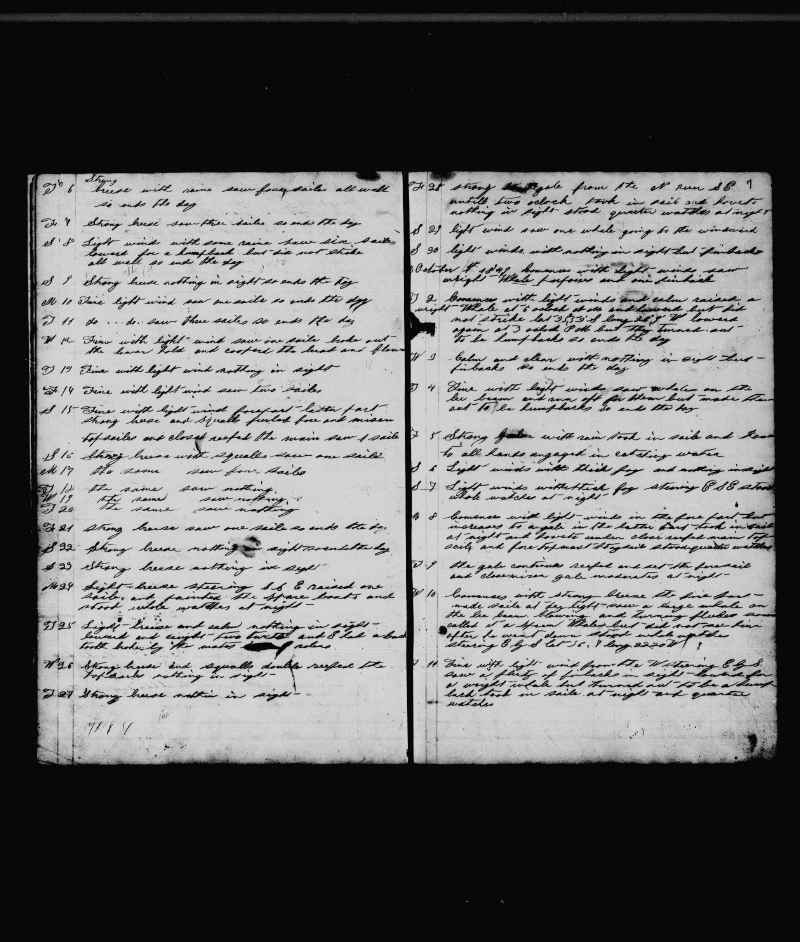 Strong
T 6 breese with raine saw four sailes all well
so ends the day
F 7 Strong breese saw three sailes so ends the day
S 8 Light wind with some raine saw six sailes
lowerd for a humpback but did not strike
all well so ends the day
S 9 Strong breese nothing in sight so ends the day
M 10 Fine light wind saw one saile so ends the day
T 11 do do saw three sailes so ends the day
W 12 Fine with light wind saw one saile broke out
the lower hold and coopered the bread and flower
T 13 Fine with light wind nothing in sight
F 14 Fine with light wind saw two sailes
S 15 Fine with light wind forepart latter part
strong breese and squalls furled fore and mizen
topsailes and close reefed the main saw 1 saile
S 16 Strong breese with squalls saw one saile
M 17 the same saw four sailes
T 18 the same saw nothing
W 19 the same saw nothing
T 20 the same saw nothing
F 21 strong breese saw one saile so ends the day
S 22 Strong breese nothing in sight so ends the day
S 23 Strong breese nothing in sight
M 24 Light breese steering S by E raised one
saile and painted the spare boats and
stood whole watches at night
T 25 Light breese and calm nothing in sight
lowered and caught two turtles and
tooth by the mates
W 26 Strong breese and squally double reefed the
topsailes nothing in sight
T 27 Strong breese nothin in sight
7
F 28 strong gale from the N run SE
untill two oclock took in sail and hove to
nothing in sight stood quarter watches at night
S 29 light wind saw one whale going to the windward
S 30 light winds with nothing in sight but finbacks
October 1841 Comences with light winds saw
wright whale porposes and one finback
T 2 Comences with light winds and calm raised a
wright whale at 6 oclock and lowered but did
not strike lat S long W lowerd
again at 3 oclock PM but they turned out
to be humpbacks so ends the day
W 3 Calm and clear with nothing in sight but
finbacks so ends the day
T 4 Fine with light winds saw whale on the
lee beam and run off for them but made them
out to be humpbacks so ends the day
F 5 Strong gale with rain took in saile and hove
to all hands engaged in catching water
S 6 Light winds with thick fog and nothing in sight
S 7 Light winds with thick fog steering E S E stood
whole watches at night
M 8 Comences with light winds in the fore part but
increases to a gale in the latter part took in sail
at night and hove to under close reefed main top
saile and fore topmast staysail stood quarter watches
T 9 the gale continues reefed and set the foresail
and close mizen gale moderates at night
W 10 Comences with strong breese the fore part
made saile at day light saw a large whale on
the lee beam blowing and turning flukes some
called it a Sperm Whale but did not see him
after he went down stood whole watche
steering E by S lat long W
T 11 Fine with light wind from the W steering E by S
saw a plenty of finbacks in sight lowered for
a wright whale but turned out to be a hump
back took in saile at night and quarter
watches